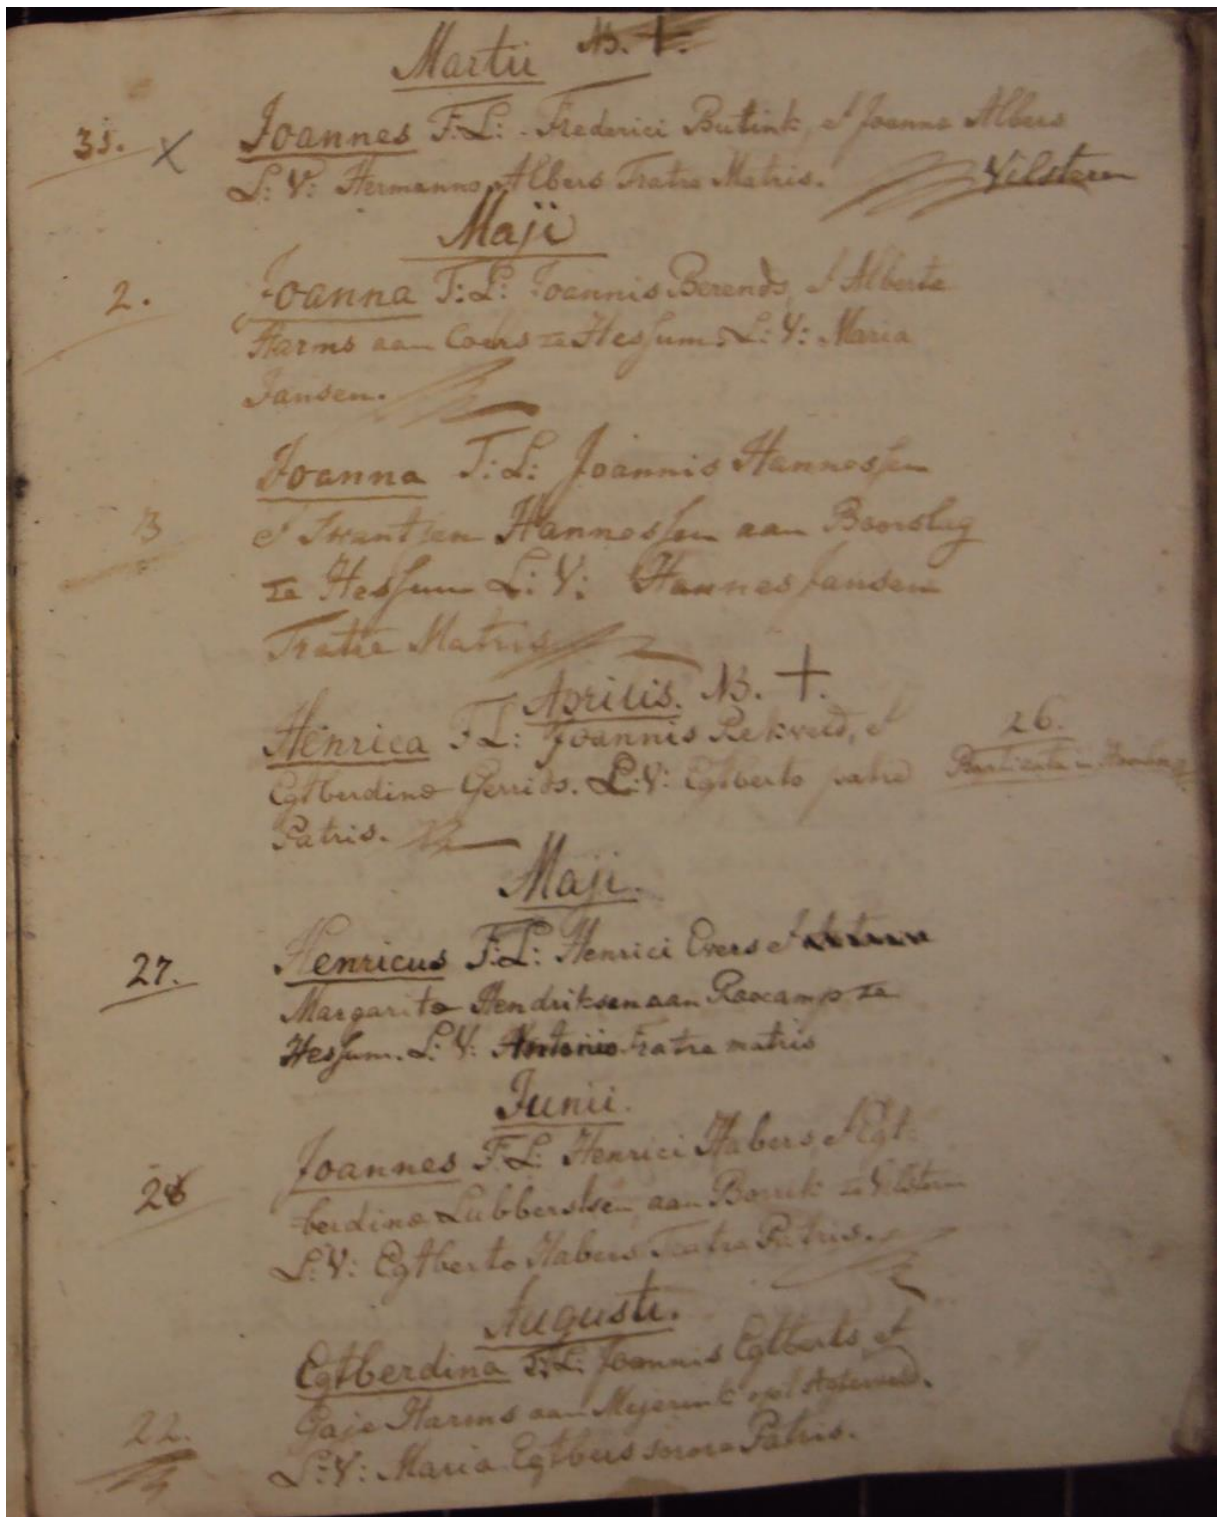 Martii NB. +.
31. X Joannes F: L: Frederici Butink, et Joanna Albers
L: V: Hermanno Albers Fratre Matris. Vilsteren
Maji
2. Joanna F: L: Joannis Berends, et Alberta
Harms aan Coers te Hessum. L: V: Maria
Jansen.
Joanna F: L: Joannis Hannessen
3 et Swantjen Hannessen aan Boerslag
te Hessum L: V: Hannes Jansen
Fratre Matris
Aprilis. NB. +.
Henrica F L: Joannis Rekveld, et 26.
Egtberdina Gerrits. L: V: Egtberto patre
Patris.
Maji.
27. Henricus F: L: Henrici Evers et
Margarita Hendriksen aan Roocamp te
Hessum. L: V: Antonio Fratre matris
Junii.
Joannes F: L: Henrici Habers, et Egt-
28 berdina Lubbertsen aan Borrik te Vilsteren
L: V: Egtberto Habers Fratre Patris.
Augusti.
Egtberdina F: L: Joannis Egtberts, et
22. Gaje Harms aan Mejerink
L: V: Maria Egtbers sorore Patris.